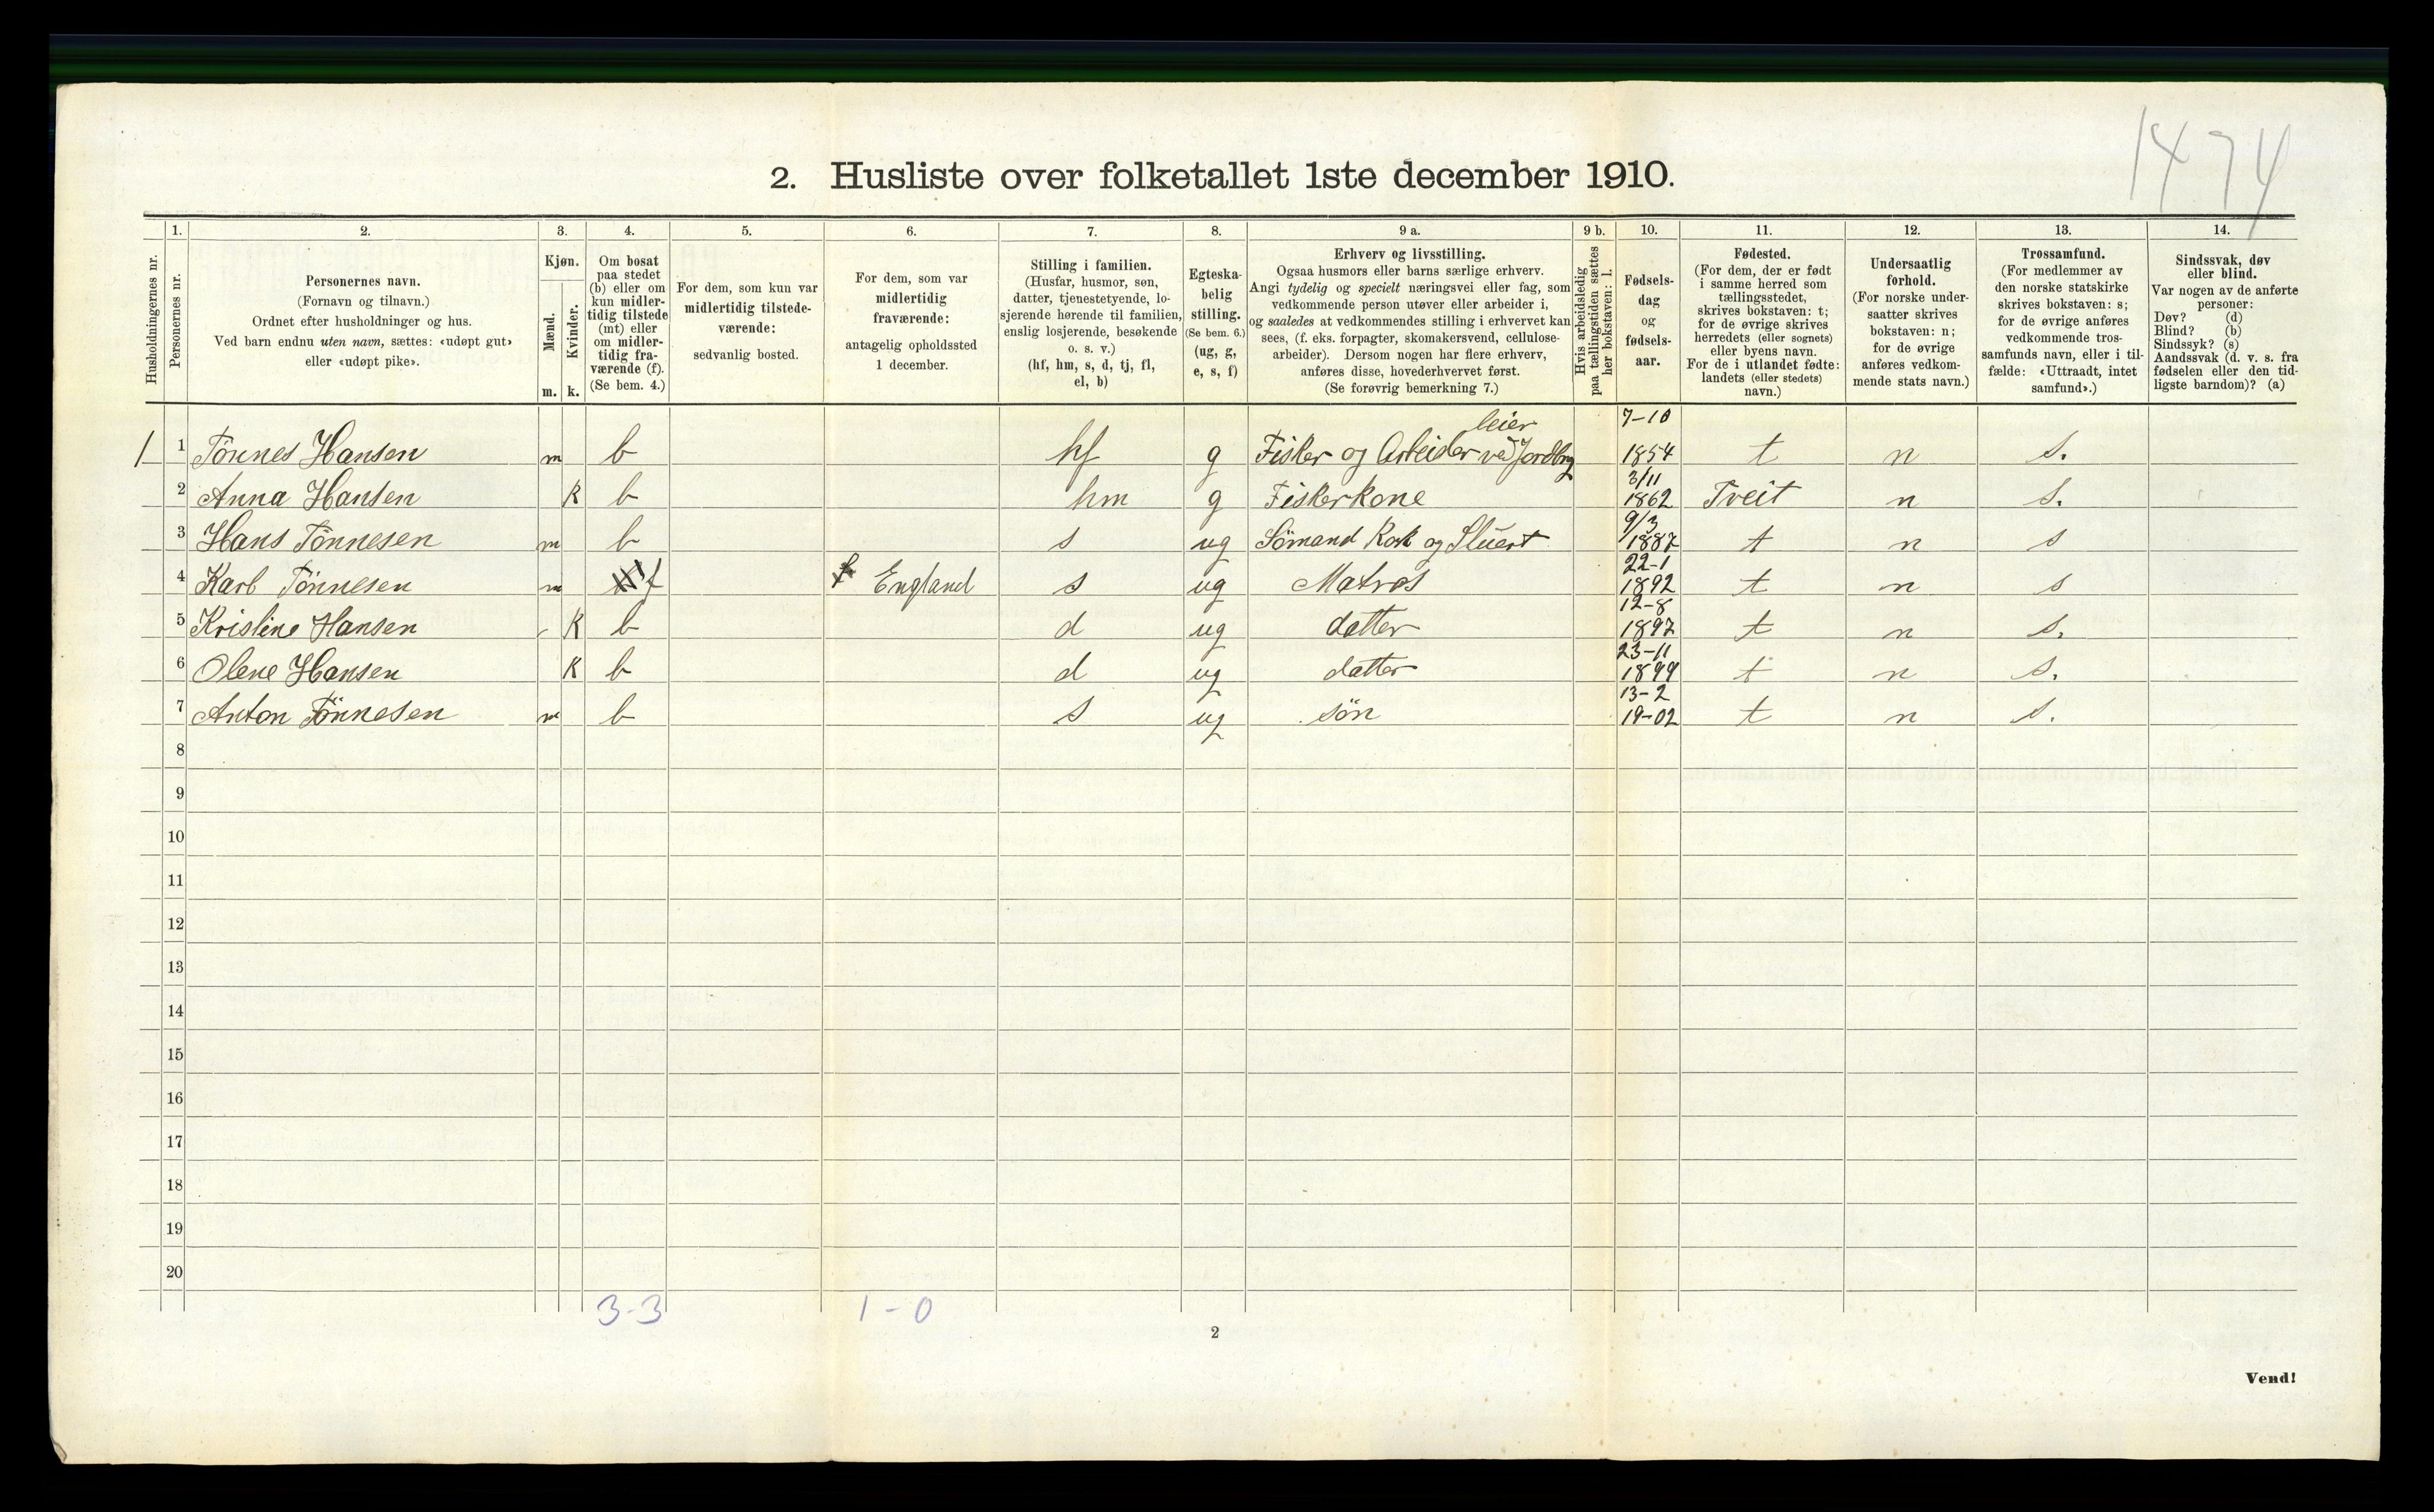 1474
2. Husliste over folketallet 1ste december 1910.
Husholdningernes nr.
1.
Personernes nr.
2.
Personernes navn.
(Fornavn og tilnavn.)
Ordnet efter husholdninger og hus.
Ved barn endnu uten navn, sættes: «udøpt gut»
eller «udøpt pike».
3.
Kjøn.
Mænd.
Kvinder.
m. k.
4.
Om bosat
paa stedet
(b) eller om
kun midler-
tidig tilstede
(mt) eller
om midler-
tidig fra-
værende (f).
(Se bem. 4.)
5.
For dem, som kun var
midlertidig tilstede-
værende:
sedvanlig bosted.
6.
For dem, som var
midlertidig
fraværende:
antagelig opholdssted
1 december.
7.
Stilling i familien.
(Husfar, husmor, søn,
datter, tjenestetyende, lo-
sjerende hørende til familien,
enslig losjerende, besøkende
o. s. v.)
(hf, hm, s, d, tj, fl,
el, b)
8.
Egteska-
belig
stilling.
(Se bem. 6.)
(ug, g,
e, s, f)
9 a.
Erhverv og livsstilling.
Ogsaa husmors eller barns særlige erhverv.
Angi tydelig og specielt næringsvei eller fag, som
vedkommende person utøver eller arbeider i,
og saaledes at vedkommendes stilling i erhvervet kan
sees, (f. eks. forpagter, skomakersvend, cellulose-
arbeider). Dersom nogen har flere erhverv,
anføres disse, hovederhvervet først.
(Se forøvrig bemerkning 7.)
9 b.
Hvis arbeidsledig
paa tællingstiden sættes
her bokstaven: l.
10.
Fødsels-
dag
og
fødsels-
aar.
11.
Fødested.
(For dem, der er født
i samme herred som
tællingsstedet,
skrives bokstaven: t;
for de øvrige skrives
herredets (eller sognets)
eller byens navn.
For de i utlandet fødte:
landets (eller stedets)
navn.)
12.
Undersaatlig
forhold.
(For norske under-
saatter skrives
bokstaven: n;
for de øvrige
anføres vedkom-
mende stats navn.)
13.
Trossamfund.
(For medlemmer av
den norske statskirke
skrives bokstaven: s;
for de øvrige anføres
vedkommende tros-
samfunds navn, eller i til-
fælde: «Uttraadt, intet
samfund».)
14.
Sindssvak, døv
eller blind.
Var nogen av de anførte
personer:
Døv? (d)
Blind? (b)
Sindssyk? (s)
Aandssvak (d. v. s. fra
fødselen eller den tid-
ligste barndom)? (a)
leier 7-10
1 1 Tönnes Hansen m b hf g Fisker og Arbeider ved Jordbrug 1854 t n s.
3/11
2 Anna Hansen K b hm g Fiskerkone 1862 Tveit n s.
9/3
3 Hans Tönnesen m b s ug Sömand Kok og Stuert 1887 t n s
22-1
4 Karl Tönnesen m f England s ug Matros 1892 t n s
12-8
5 Kristine Hansen K b d ug datter 1897 t n s.
23-11
6 Olene Hansen K b d ug datter 1899 t n s.
13-2
7 Anton Tönnesen m b s ug sön 19-02 t n s.
8
9
10
11
12
13
14
15
16
17
18
19
20
3-3 1-0
2
Vend!